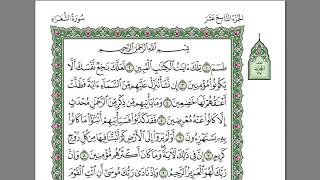 سُورَةُ الشُّعَرَاءِ الجُزْءُ التَّاسِعَ عَشَرَ
بِسْمِ ٱللَّهِ ٱلرَّحْمَٰنِ ٱلرَّحِيمِ
طسٓمٓ ١ تِلْكَ ءَايَٰتُ ٱلْكِتَٰبِ ٱلْمُبِينِ ٢ لَعَلَّكَ بَٰخِعٌ نَّفْسَكَ أَلَّا
يَكُونُوا۟ مُؤْمِنِينَ ٣ إِن نَّشَأْ نُنَزِّلْ عَلَيْهِم مِّنَ ٱلسَّمَآءِ ءَايَةً فَظَلَّتْ
أَعْنَٰقُهُمْ لَهَا خَٰضِعِينَ ٤ وَمَا يَأْتِيهِم مِّن ذِكْرٍ مِّنَ ٱلرَّحْمَٰنِ مُحْدَثٍ
إِلَّا كَانُوا۟ عَنْهُ مُعْرِضِينَ ٥ فَقَدْ كَذَّبُوا۟ فَسَيَأْتِيهِمْ أَنۢبَٰٓؤُا۟ مَا كَانُوا۟
بِهِۦ يَسْتَهْزِءُونَ ٦ أَوَلَمْ يَرَوْا۟ إِلَى ٱلْأَرْضِ كَمْ أَنۢبَتْنَا فِيهَا مِن كُلِّ زَوْجٍ
كَرِيمٍ ٧ إِنَّ فِى ذَٰلِكَ لَءَايَةً وَمَا كَانَ أَكْثَرُهُم مُّؤْمِنِينَ ٨ وَإِنَّ
رَبَّكَ لَهُوَ ٱلْعَزِيزُ ٱلرَّحِيمُ ٩ وَإِذْ نَادَىٰ رَبُّكَ مُوسَىٰٓ أَنِ ٱئْتِ ٱلْقَوْمَ